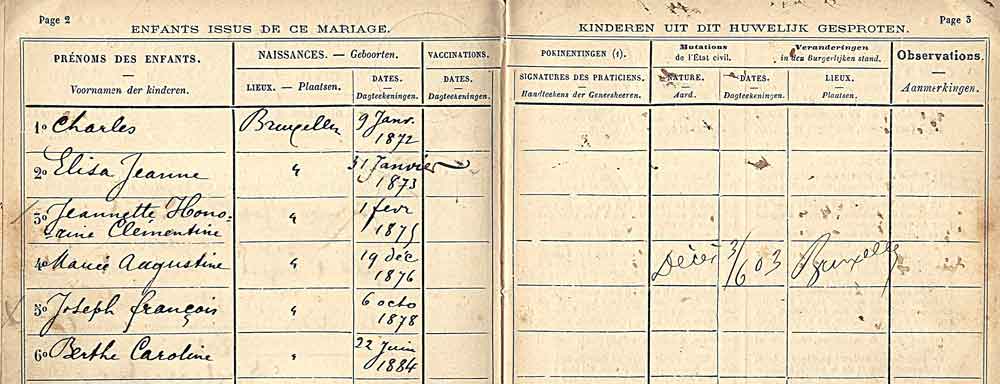 Page 2
ENFANTS ISSUS DE CE MARIAGE.
PRÉNOMS DES ENFANTS.
Voornamen der kinderen.
NAISSANCES. — Geboorten.
LIEUX. — Plaatsen.
DATES.
Dagteekeningen.
VACCINATIONS.
DATES.
Dagteekeningen.
1o Charles Bruxelles 9 Janv.
1872
2o Elisa Jeanne " 31 Janvier
1873
3o Jeannette Hono-
-rine Clementine " 1 fevr
1875
4o Marie Augustine " 19 déc
1876
5o Joseph françois " 6 octo
1878
6o Berthe Caroline " 22 Juin
1884
Page 3
KINDEREN UIT DIT HUWELIJK GESPROTEN.
POKINENTINGEN (1).
SIGNATURES DES PRATICIENS.
Handteekens der Geneesheeren.
Mutations
de l'État civil.
Veranderingen
in den Burgerlijken stand.
NATURE.
Aard.
DATES.
Dagteekeningen.
LIEUX.
Plaatsen.
Observations.
Aanmerkingen.
Décès 3/6 03 Bruxelles